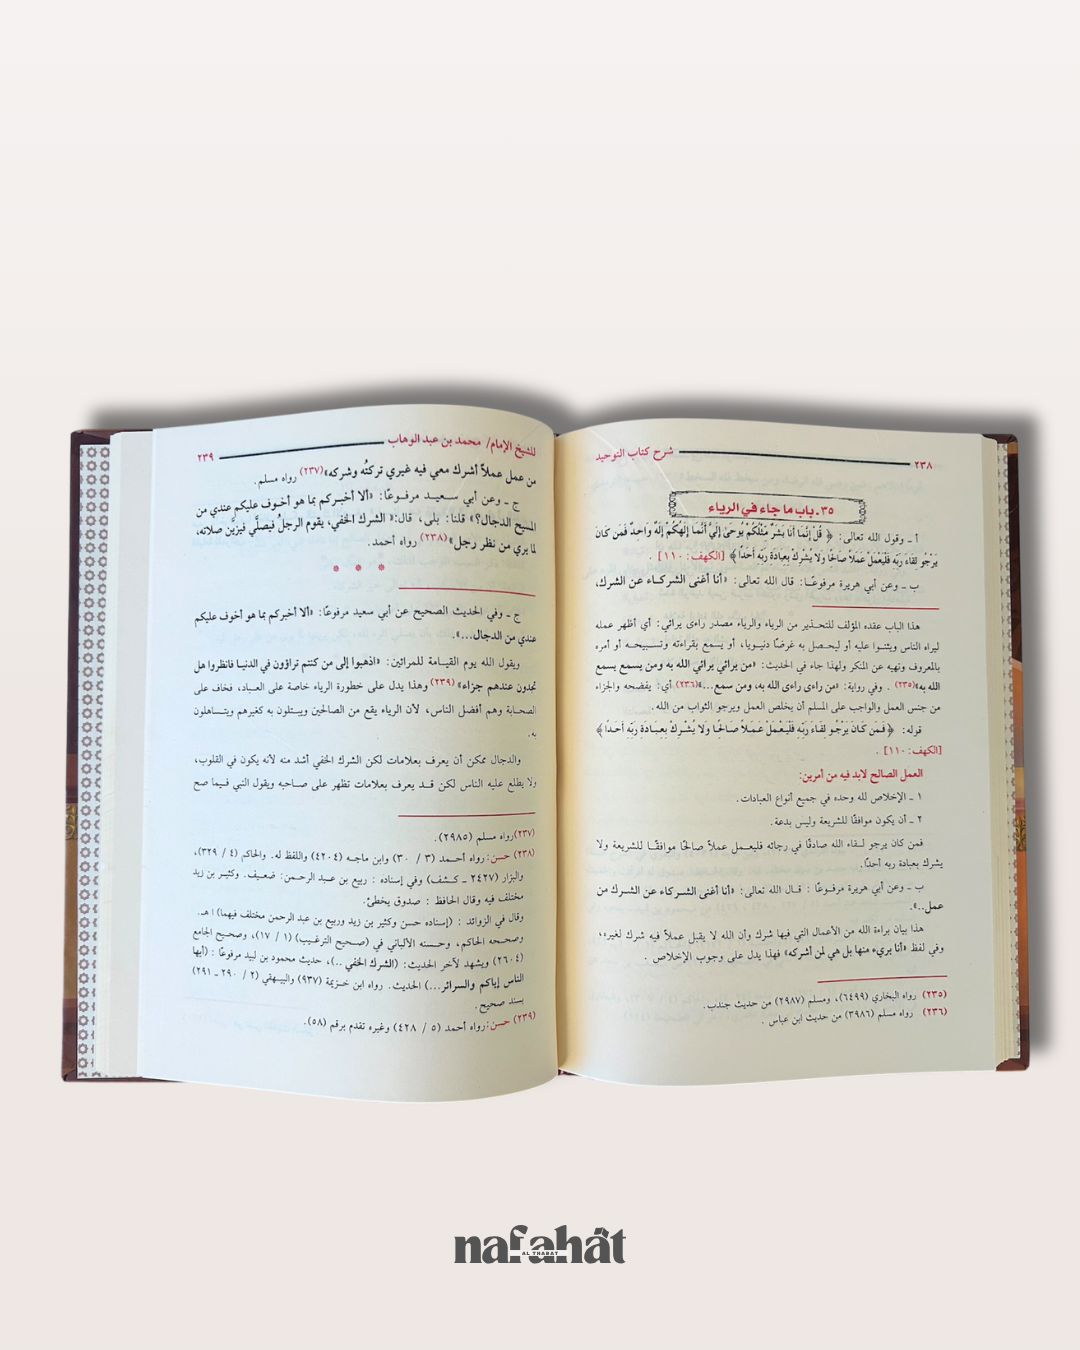 ٢٣٨ شرح كتاب التوحيد
٣٥ـ باب ما جاء في الرياء
أ ـ وقول الله تعالى: ﴿ قُلْ إِنَّمَا أَنَا بَشَرٌ مِّثْلُكُمْ يُوحَىٰ إِلَيَّ أَنَّمَا إِلَهُكُمْ إِلَهٌ وَاحِدٌ فَمَن كَانَ
يَرْجُو لِقَاءَ رَبِّهِ فَلْيَعْمَلْ عَمَلاً صَالِحًا وَلا يُشْرِكْ بِعِبَادَةِ رَبِّهِ أَحَدًا ﴾ [الكهف: ١١٠] .
ب ـ وعن أبي هريرة مرفوعًـا: قال الله تعالى: «أنا أغنى الشركـاء عن الشرك،
هذا الباب عقده المؤلف للتحـذير من الرياء والرياء مصدر راءى يرائي: أي أظهر عمله
ليراه الناس ويثنـوا عليه أو ليحصل به غرضًا دنيـويا، أو يسمع بقراءته وتسـبيحـه أو أمره
بالمعروف ونهيه عن المنكر ولهذا جاء في الحديث: «من يرائي يرائي الله به ومن يسمع يسمع
الله به»(٢٣٥) . وفي رواية: «من راءى راءى الله به، ومن سمع...»(٢٣٦) أي: يفضحه والجزاء
من جنس العمل والواجب على المسلم أن يخلص العمل ويرجو الثواب من الله.
قوله: ﴿ فَمَن كَانَ يَرْجُو لِقَاءَ رَبِّهِ فَلْيَعْمَلْ عَمَلاً صَالِحًا وَلا يُشْرِكْ بِعِبَادَةِ رَبِّهِ أَحَدًا ﴾
[الكهف: ١١٠] .
العمل الصالح لابد فيه من أمرين:
١ ـ الإخلاص لله وحده في جميع أنواع العبادات.
٢ ـ أن يكون موافقًا للشريعة وليس بدعة.
فمن كان يرجو لقـاء الله صادقًا في رجائه فليعـمل عملاً صالحًا موافقًـا للشريعة ولا
يشرك بعبادة ربه أحدًا.
ب ـ وعن أبي هريرة مرفوعًـا : قـال الله تعالى: «أنا أغنى الشـركاء عن الشرك من
عمل..».
هذا بيان براءة الله من الأعمال التي فيها شرك وأن الله لا يقبل عملاً فيه شرك لغيره،
وفي لفظ «أنا بريء منها بل هي لمن أشركه» فهذا يدل على وجوب الإخلاص .
(٢٣٥) رواه البخاري (٦٤٩٩)، ومسلم (٢٩٨٧) من حديث جندب.
(٢٣٦) رواه مسلم (٣٩٨٦) من حديث ابن عباس .
للشيخ الإمام/ محمد بن عبد الوهاب ٢٣٩
من عمل عملاً أشرك معي فيه غيري تركتُه وشركه»(٢٣٧) رواه مسلم.
ج ـ وعن أبي سـعيـد مرفـوعًا: «ألا أخبـركم بما هو أخـوف عليكم عندي من
المسيح الدجال؟» قلنا: بلى، قال:« الشرك الخفي، يقوم الرجلُ فيصلِّي فيزيِّن صلاته،
لما يري من نظر رجل»(٢٣٨) رواه أحمد.
* * *
ج ـ وفي الحديث الصحيح عن أبي سعيد مرفوعًا: «ألا أخبركم بما هو أخوف عليكم
عندي من الدجال...».
ويقول الله يوم القيـامة للمرائين: «اذهبوا إلى من كنتم تراؤون في الدنيا فانظروا هل
تجدون عندهم جزاء» (٢٣٩) وهذا يدل على خطورة الرياء خاصة على العباد، فخاف على
الصحـابة وهم أفضل الناس، لأن الرياء يقع من الصالحين ويبـتلون به كغيرهم ويتـساهلون
به.
والدجال ممكن أن يعرف بعلامات لكن الشرك الخفي أشد منه لأنه يكون في القلوب،
ولا يطلع عليه الناس لكن قـد يعرف بعلامات تظهر على صـاحبه ويقول النبي فـيما صح
(٢٣٧)رواه مسلم (٢٩٨٥).
(٢٣٨) حسن: رواه أحـمد (٣ / ٣٠) وابن ماجـه (٤٢٠٤) واللفظ له. والحاكم (٤ / ٣٢٩)،
والبزار (٢٤٢٧ ـ كـشف) وفي إسناده : ربيع بن عـبد الرحمن: ضعـيف. وكثيـر بن زيد
مختلف فيه وقال الحافظ : صدوق يخطئ.
وقال في الزوائد : (إسناده حسن وكثير بن زيد وربيع بن عبد الرحمن مختلف فيهما) ا هـ.
وصحـحه الحاكم، وحسنه الألباني في (صـحيح الترغـيب) (١ / ١٧)، وصحـيح الجامع
(٢٦٠٤) ويشهد لآخر الحديث: (الشرك الخفي ..)، حديث محمود بن لبيد مرفوعًا : (أيها
الناس إياكم والسرائر...) الحديث. رواه ابن خـزيمة (٩٣٧) والبيـهقي (٢ / ٢٩٠ ـ ٢٩١)
بسند صحيح.
(٢٣٩) حسن: رواه أحمد (٥ / ٤٢٨) وغيره تقدم برقم (٥٨).
nafahât
AL THABAT